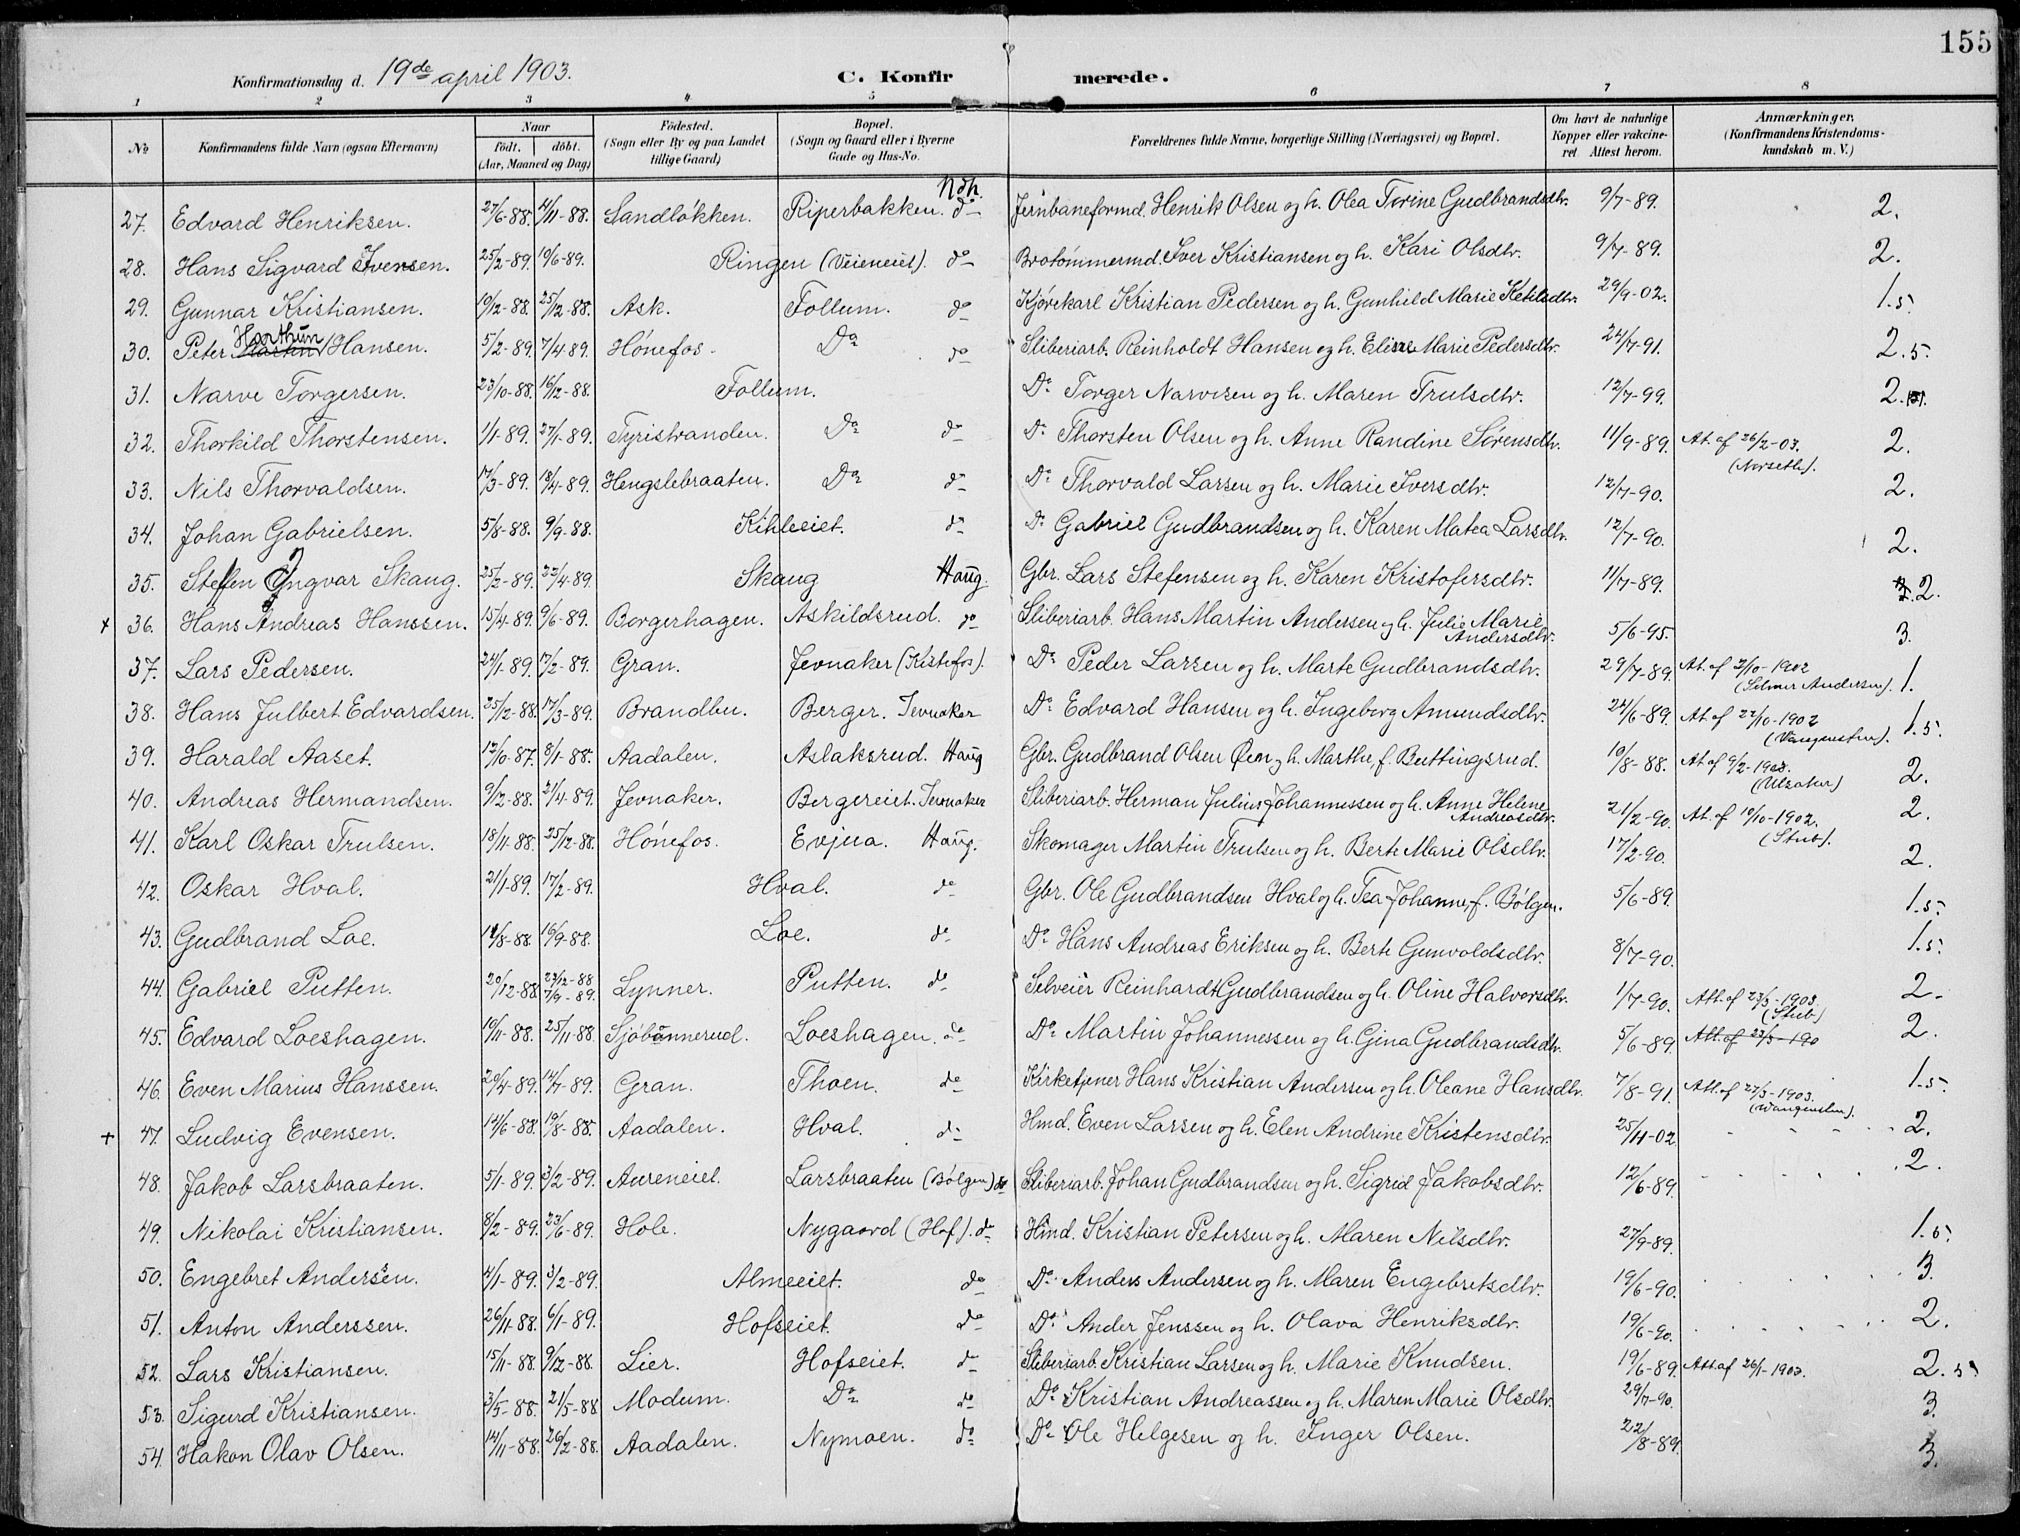 155
Konfirmationsdag d. 19de april 1903. C. Konfirmerede.
1 2 3 4 5 6 7 8
No Konfirmandens fulde Navn (ogsaa Efternavn) Naar Født. døbt. (Aar, Maaned og Dag) Fødested. (Sogn eller By og paa Landet tillige Gaard) Bopæl. (Sogn og Gaard eller i Byerne Gade og Hus-No. Forældrenes fulde Navne, borgerlige Stilling (Næringsvei) og Bopæl. Om havt de naturlige Kopper eller vakcineret. Attest herom. Anmærkninger. (Konfirmandens Kristendomskundskab m. V.)
27. Edvard Henriksen. 27/6-88. 11/11-88. Sandløkken. Riperbakken. Ndh. do Jernbaneformd. Henrik Olsen og h. Olea Torine Gudbrandsdtr. 9/7-89. 2.
28. Hans Sigvard Ivensen. 25/2-89. 10/6-89. Ringen (Veieneiet). do Brotømmermd. Iver Kristiansen og h. Kari Olsdtr. 9/7-89. 2.
29. Gunnar Kristiansen. 10/2-88. 25/12-88. Ask. Follum. do Kjørekarl Kristian Pedersen og h. Gunhild Marie Ketilsdtr. 29/9-02. 1.5.
30. Peter Hansen. 5/2-89. 7/4-89. Hønefos. Do do Sliberiarb. Reinholdt Hansen og h. Elise Marie Pedersdtr. 24/7-91. 2.5.
31. Narve Torgersen. 23/10-88. 16/12-88. Follum. Do Torger Narvesen og h. Maren Trulsdtr. 12/7-99. 2.
32. Thorkild Thorstensen. 1/1-89. 27/1-89. Tyristranden. Do do Do Thorsten Olsen og h. Anne Randine Sørensdtr. 11/9-89. At. af 26/2-03. 2.
(Norseth).
33. Nils Thorvaldsen. 17/3-89. 18/4-89. Hengslebraaten. Do do Do Thorvald Larsen og h. Marie Iversdtr. 12/7-90. 2.
34. Johan Gabrielsen. 5/8-88. 9/9-88. Kihleeiet. do Do Gabriel Gudbrandsen og h. Karen Matea Larsdtr. 12/7-90. 2.
35. Steffen Yngvar Skaug. 25/2-89. 22/4-89. Skaug Haug. Gbr. Lars Stefensen og h. Karen Kristofersdtr. 11/7-89. 2.
+ 36. Hans Andreas Hanssen. 15/4-89. 9/6-89. Borgerhagen. Askildsrud. do Sliberiarb. Hans Martin Andersen og h. Julie Marie Andersdtr. 5/6-95. 3.
37. Lars Pedersen. 24/1-89. 17/2-89. Gran. Jevnaker (Kistefos). Do Peder Larsen og h. Marte Gudbrandsdtr. 29/7-89. At. af 2/10-1902 1.
(Selmer Andersen).
38. Hans Julbert Edvardsen. 25/12-88. 17/3-89. Brandbu. Berger. Jevnaker Do Edvard Hansen og h. Ingeborg Amundsdtr. 24/6-89. At. af 22/10-1902 1.5.
(Wangensten).
39. Harald Aaset. 12/10-87. 8/1-88. Aadalen. Aslaksrud. Haug Gbr. Gudbrand Olsen Øen og h. Marthe, f. Buttingsrud. 10/8-88. At. af 9/2-1903. 2.
(Ulsaker)
40. Andreas Hermandsen. 9/12-88. 21/4-89. Jevnaker. Bergereiet. Jevnaker Sliberiarb. Herman Julius Johannessen og h. Anne Helene Andreasdtr. 21/2-90. At. af 10/10-1902. 2.
(Stub).
41. Karl Oskar Trulsen. 18/11-88. 25/12-88. Hønefos. Evjua. Haug. Skomager Martin Trulsen og h. Berte Marie Olsdtr. 17/2-90. 2.
42. Oskar Hval. 21/1-89. 17/2-89. Hval. do Gbr. Ole Gudbrandsen Hval og h. Tea Johanne, f. Bølgen. 5/6-89. 1.5.
43. Gudbrand Loe. 11/8-88. 16/9-88. Loe. do Do Hans Andreas Eriksen og h. Berte Gunvoldsdtr. 8/7-90. 1.5.
44. Gabriel Putten. 20/12-88. 23/12-88 7/9-89. Lynner. Putten. do Selveier Reinhardt Gudbrandsen og h. Oline Halvorsdtr. 1/7-90. Att. af 23/3-1903. 2.
(Stub)
45. Edvard Loeshagen. 10/11-88. 25/11-88. Sjøbønnerud. Loeshagen. do Do Martin Johannessen og h. Gina Gudbrandsdtr. 5/6-89. Att. af 23/3-190 2.
46. Even Marius Hanssen. 20/4-89. 14/7-89. Gran. Thoen. do Kirketjener Hans Kristian Andersen og h. Oleane Hansdtr. 7/8-91. Att. af 27/3-1903. 1.5.
(Wangensten).
+ 47. Ludvig Evensen. 14/6-88. 19/8-88. Aadalen. Hval. do Hmd. Even Larsen og h. Elen Andrine Kristensdtr. 25/11-02. 2.
48. Jakob Larsbraaten. 5/1-89. 3/2-89. Aureneiet. Larsbraaten (Bølgen) do Sliberiarb. Johan Gudbrandsen og h. Sigrid Jakobsdtr. 12/6-89. 2.
49. Nikolai Kristiansen. 8/2-89. 23/6-89. Hole. Nygaard (Hof). do Hmd. Kristian Petersen og h. Maren Nilsdtr. 27/9-89. 1.5.
50. Engebret Andersen. 4/1-89. 3/2-89. Almeeiet. do Do Anders Andersen og h. Maren Engebretsdtr. 19/6-90. 3.
51. Anton Anderssen. 26/11-88. 6/1-89. Hofseiet. do Do Ander Jenssen og h. Olava Henriksdtr. 19/6-90. 2.
52. Lars Kristiansen. 15/11-88. 9/12-88. Lier. Hofseiet. do Sliberiarb. Kristian Larsen og h. Marie Knudsen. 19/6-89. Att. af 26/1-1903. 2.5
53. Sigurd Kristiansen. 3/5-88. 21/5-88 Modum. Do do Do Kristian Andreassen og h. Maren Marie Olsdtr. 29/7-90. 3.
54. Hakon Olav Olsen. 14/11-88. 26/2-88. Aadalen. Nymoen. do Do Ole Helgesen og h. Inger Olsen. 22/8-89. 3.